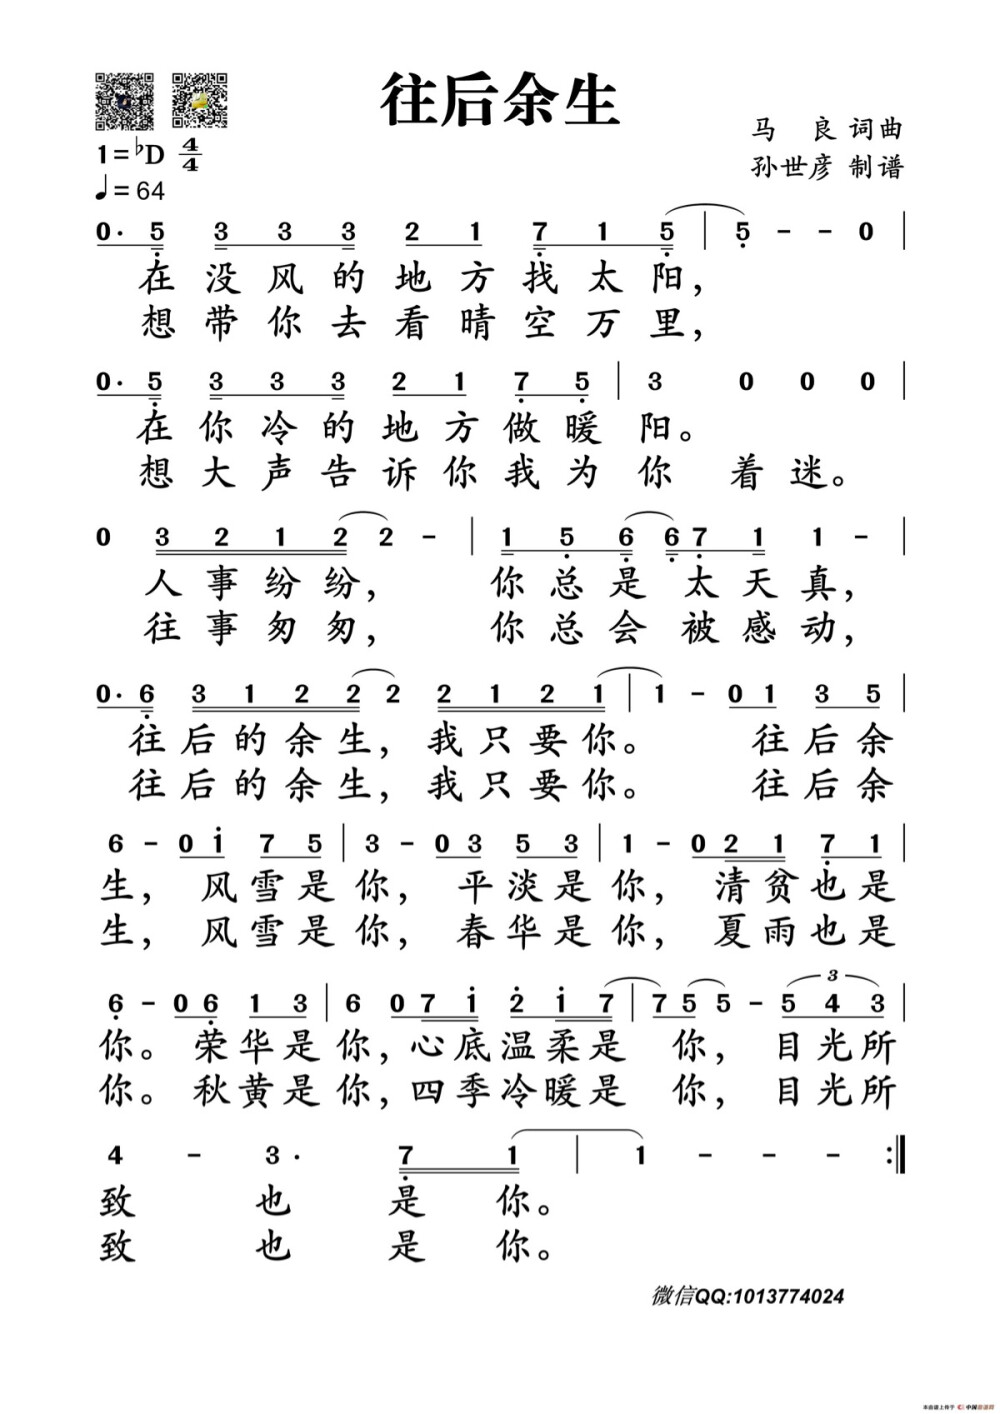 往后余生
马 良 词曲
1=♭D 4/4
孙世彦 制谱
♩=64
0· 5 3 3 3 2 1 7 1 5 | 5 - - 0 |
在没风的地方找太阳，
想带你去看晴空万里，
0· 5 3 3 3 2 1 7 5 | 3 0 0 0 |
在你冷的地方做暖阳。
想大声告诉你我为你着迷。
0 3 2 1 2 2 - | 1 5 6 6 7 1 1 - |
人事纷纷，你总是太天真，
往事匆匆，你总会被感动，
0· 6 3 1 2 2 2 2 1 2 1 | 1 - 0 1 3 5 |
往后的余生，我只要你。 往后余
往后的余生，我只要你。 往后余
6 - 0 1 7 5 | 3 - 0 3 5 3 | 1 - 0 2 1 7 1 |
生，风雪是你，平淡是你，清贫也是
生，风雪是你，春华是你，夏雨也是
6 - 0 6 1 3 | 6 0 7 1 2 1 7 | 7 5 5 - 3 5 4 3 |
你。荣华是你，心底温柔是你，目光所
你。秋黄是你，四季冷暖是你，目光所
4 - 3· 7 1 | 1 - - - :|
致也是你。
致也是你。
微信QQ:1013774024
本曲谱上传于 中国曲谱网